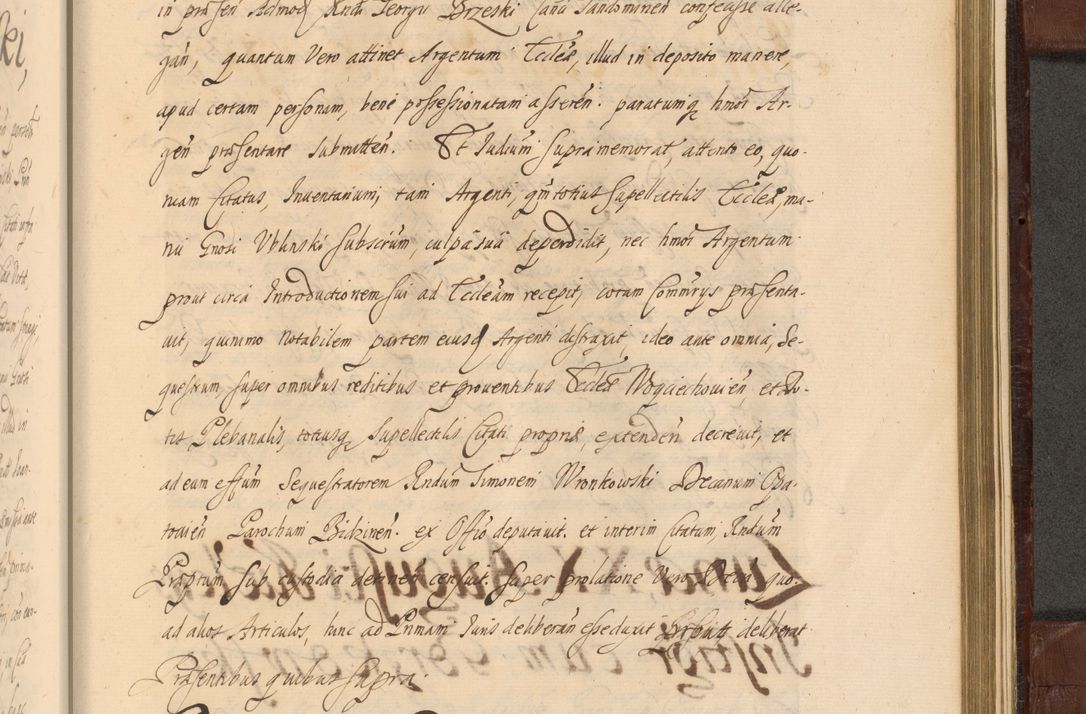 in præsen Admod Rndi Georgii Brzeski Canci Sandomirien confecisse alle-
gan, quantum Vero attinet Argentum Eccleæ, illud in deposito manere,
apud certam personam, bene possessionatam asseren. paratumq hmoi Ar-
gen præsentare submitten. Et Iudium supra memorat, attento eo, quo-
niam Citatus, Inventarium, tam Argenti, qm totius Supellectilis Eccleæ, ma-
nu Gnosi Ublinski subscrium, culpa sua deperdidit, nec hmoi Argentum
prout circa Introductionem sui ad Eccleam recepit, coram Commrys præsenta-
uit, quinimo notabilem partem eiusd Argenti distraxit, ideo ante omnia, Se-
questrum, super omnibus reditibus et prouentibus Eccleæ Woyciechouien, et Do-
tis Plebanalis, totiusq Supellectilis Citati propriæ, extenden decreuit, et
ad eum effum Sequestratorem Rndum Simonem Wronkowski Decanum Opa-
touien Parochum Bidzinen. ex Offio deputauit. et interim Citatum Rndum
sub custodia detinen censuit. super prolatione Vero Decis quo
ad alios Articulos, hunc ad Primam Iuris deliberan esse duxit prout deliberat
Præsentibus quibus supra.